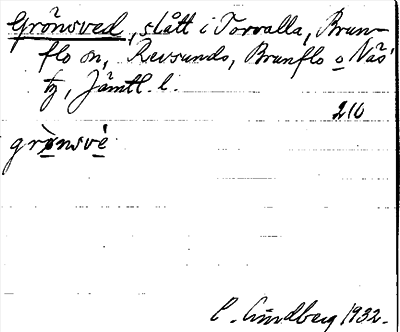 Grönsved, slått i Torvalla, Brun-
flo sn, Revsunds, Brunflo o Näs
tg, Jämtl. l.
210
grònsvè
C. Lindberg 1932.